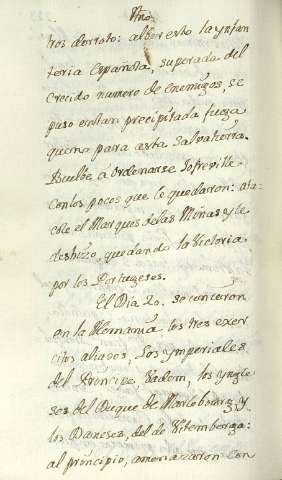 tros derroto: al ber esto la ynfan
teria Española, superada del
crecido numero de enemigos, se
puso en tan precipitada fuega
que no para asta Salvatierra.
Buelbe â ordenarse Jofreville
con los pocos que le quedaron: ata
cole el Marques de las Minas y le
deshizo, quedando la Victoria
por los Portugeses.
El Dia 20. se
en la Alemania los tres exer
citos aliados, Los ymperiales
del Principe Badem, los yngle
ses del Duque de Marlobourg y
los Daneses, del de Vitemberga:
al principio, amenazaron con